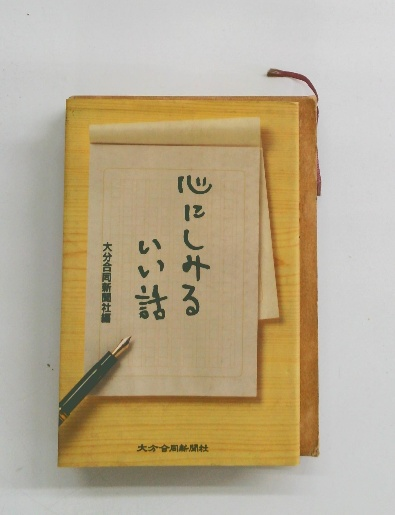 心にしみる
いい話
大分合同新聞社編
大分合同新聞社